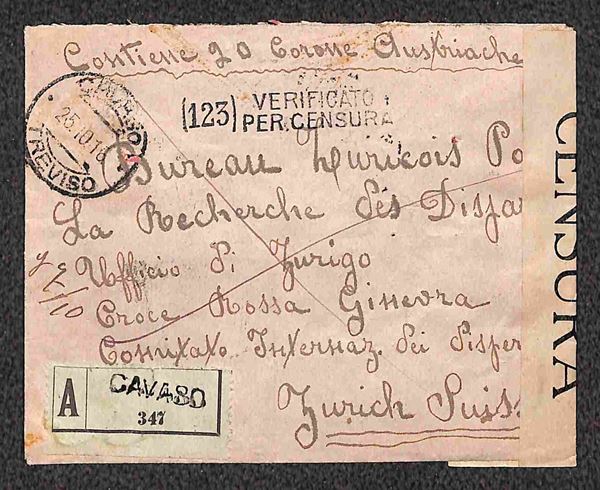 Contiene 20 Corone Austriache
CAVASO
25.10.16
TREVISO
(123) VERIFICATO
PER CENSURA
Bureau Zuricois Po
La Recherche des Dispar
Ufficio di Zurigo
Croce Rossa Ginevra
Comitato Internaz. dei disper
Zurich Suiss
A
CAVASO
347
CENSURA